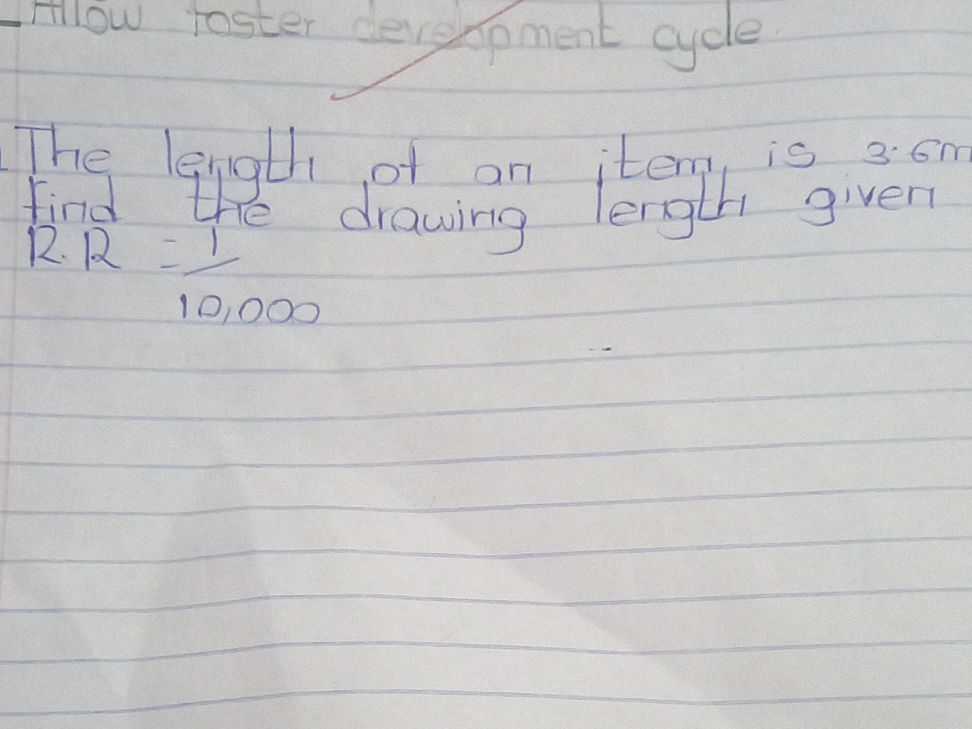 - Allow faster development cycle
The length of an item is 3.6m
find the drawing length given
R.R = 1/
10,000